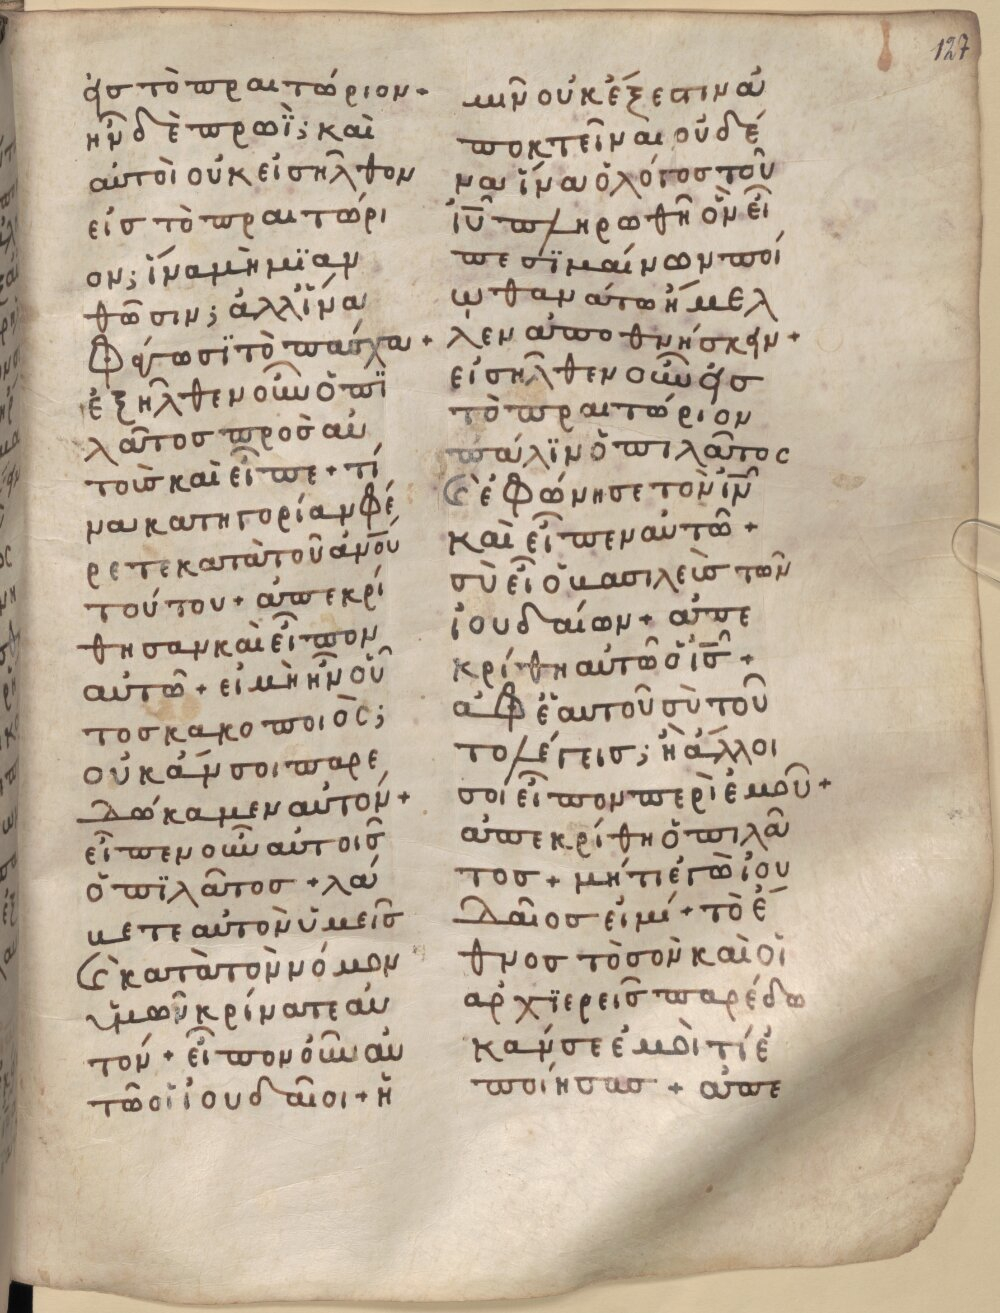 127
εἰσ τὸ πραιτώριον +
ἦν δὲ πρωΐ; καὶ
αὐτοὶ οὐκ εἰσῆλθον
εἰσ τὸ πραιτώρι
ον; ἵνα μὴ μϊαν
θῶσιν; ἀλλ ἵνα
φάγωσϊ τὸ πάσχα +
ἐξῆλθεν οὖν ὁ πϊ
λᾶτοσ πρὸσ αὐ
τοὺσ καὶ εἶπε + τί
να κατηγορίαν φέ
ρετε κατὰ τοῦ ἀν̅ου
τούτου + ἀπεκρί
θησαν καὶ εἶπον
αὐτῶ + εἰ μὴ ἦν οὗ
τοσ κακοποιὸς;
οὐκ ἄν σοι παρε
δώκαμεν αὐτόν +
εἶπεν οὖν αὐτοῖσ
ὁ πϊλᾶτοσ + λά
βετε αὐτὸν ὑμεῖσ
καὶ κατὰ τὸν νόμον
ὑμῶν κρίνατε αὐ
τόν + εἶπον οὖν αὐ
τῶ οἱ ἰουδαῖοι + ἡ
μῖν οὐκ ἔξεστιν ἀ
ποκτεῖναι οὐδέ
να ἵνα ὁ λόγοσ τοῦ
ἰ̅υ̅ πληρωθῆ ὃν εἶ
πε σϊμαίνων ποί
ω θανάτω ἤμελ
λεν ἀποθνήσκειν +
εἰσῆλθεν οὖν εἰσ
τὸ πραιτώριον
πάλϊν ὁ πιλᾶτος
καὶ ἐφώνησε τὸν ἰ̅ν̅
καὶ εἶπεν αὐτῶ +
σὺ εἶ ὁ βασιλεὺσ τῶν
ἰουδαίων + ἀπε
κρίθη αὐτῶ ὁ ἰ̅σ̅ +
ἀφ ἑαυτοῦ σὺ τοῦ
το λέγεισ; ἢ ἄλλοι
σοί εἶπον περὶ ἐμοῦ +
ἀπεκρίθη ὁ πιλᾶ
τοσ + μήτι ἐγὼ ἰου
δαῖοσ εἰμί + τὸ ἔ
θνοσ τὸ σὸν καὶ οἱ
ἀρχϊερεῖσ παρέδω
κάν σε ἐμοὶ τί ἐ
ποίησασ + ἀπε